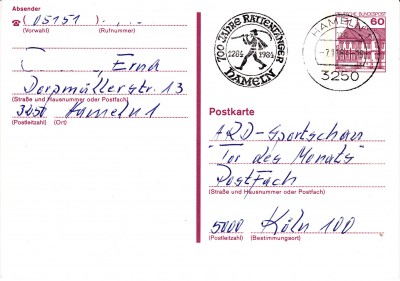 Absender
☎ (05151) -.-.-
(Vorwahl) (Rufnummer)
, Erna
Dorpmüllerstr. 13
(Straße und Hausnummer oder Postfach)
3250 Hameln 1
(Postleitzahl) (Ort)
700 JAHRE RATTENFÄNGER
1284 1984
HAMELN
HAMELN
-7.1
3250
DEUTSCHE BUNDESPOST
60
Postkarte
ARD-Sportschau
"Tor des Monats"
Postfach
(Straße und Hausnummer oder Postfach)
5000 Köln 100
(Postleitzahl) (Bestimmungsort)